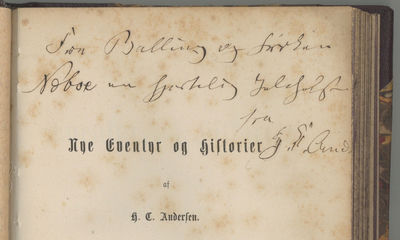 Fru Balling og Frøken
Neboe en hjertelig Julehilsen
fra
Nye Eventyr og Historier
af
H. C. Andersen.